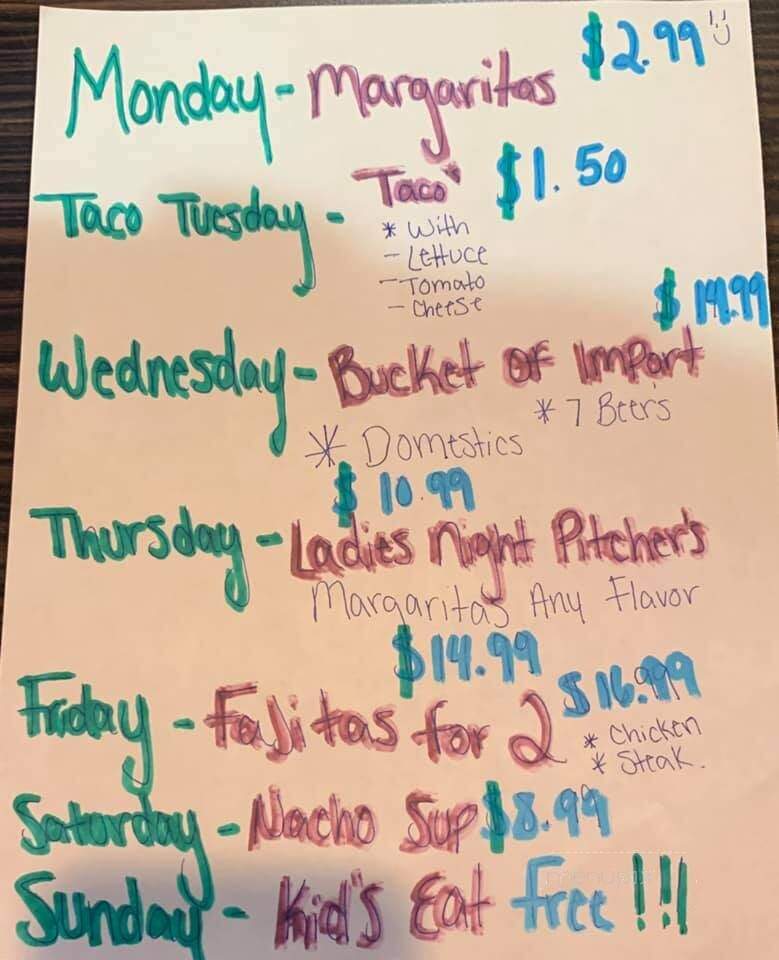 Monday - Margaritas $2.99
Taco Tuesday - Taco $1.50
* With
- Lettuce
- Tomato
- Cheese
$14.99
Wednesday - Bucket of Import
* 7 Beers
* Domestics
$10.99
Thursday - Ladies Night Pitcher's
Margaritas Any Flavor
$14.99
Friday - Fajitas for 2 $16.99
* Chicken
* Steak.
Saturday - Nacho Sup $8.99
Sunday - Kid's Eat free !!!